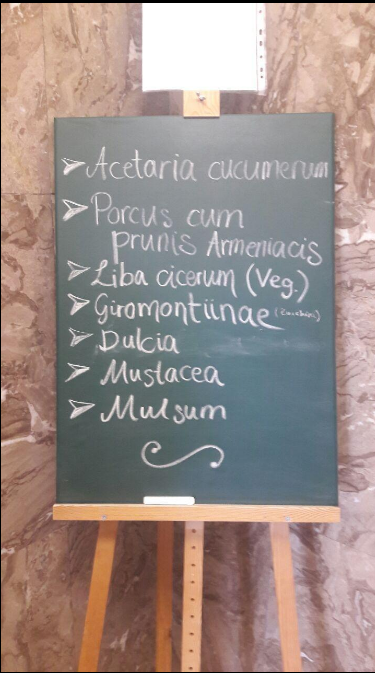 ➢ Acetaria cucumerum
➢ Porcus cum
prunis Armeniacis
➢ Liba cicerum (Veg.)
➢ Giromontiinae (Zucchini)
➢ Dulcia
➢ Mustacea
➢ Mulsum